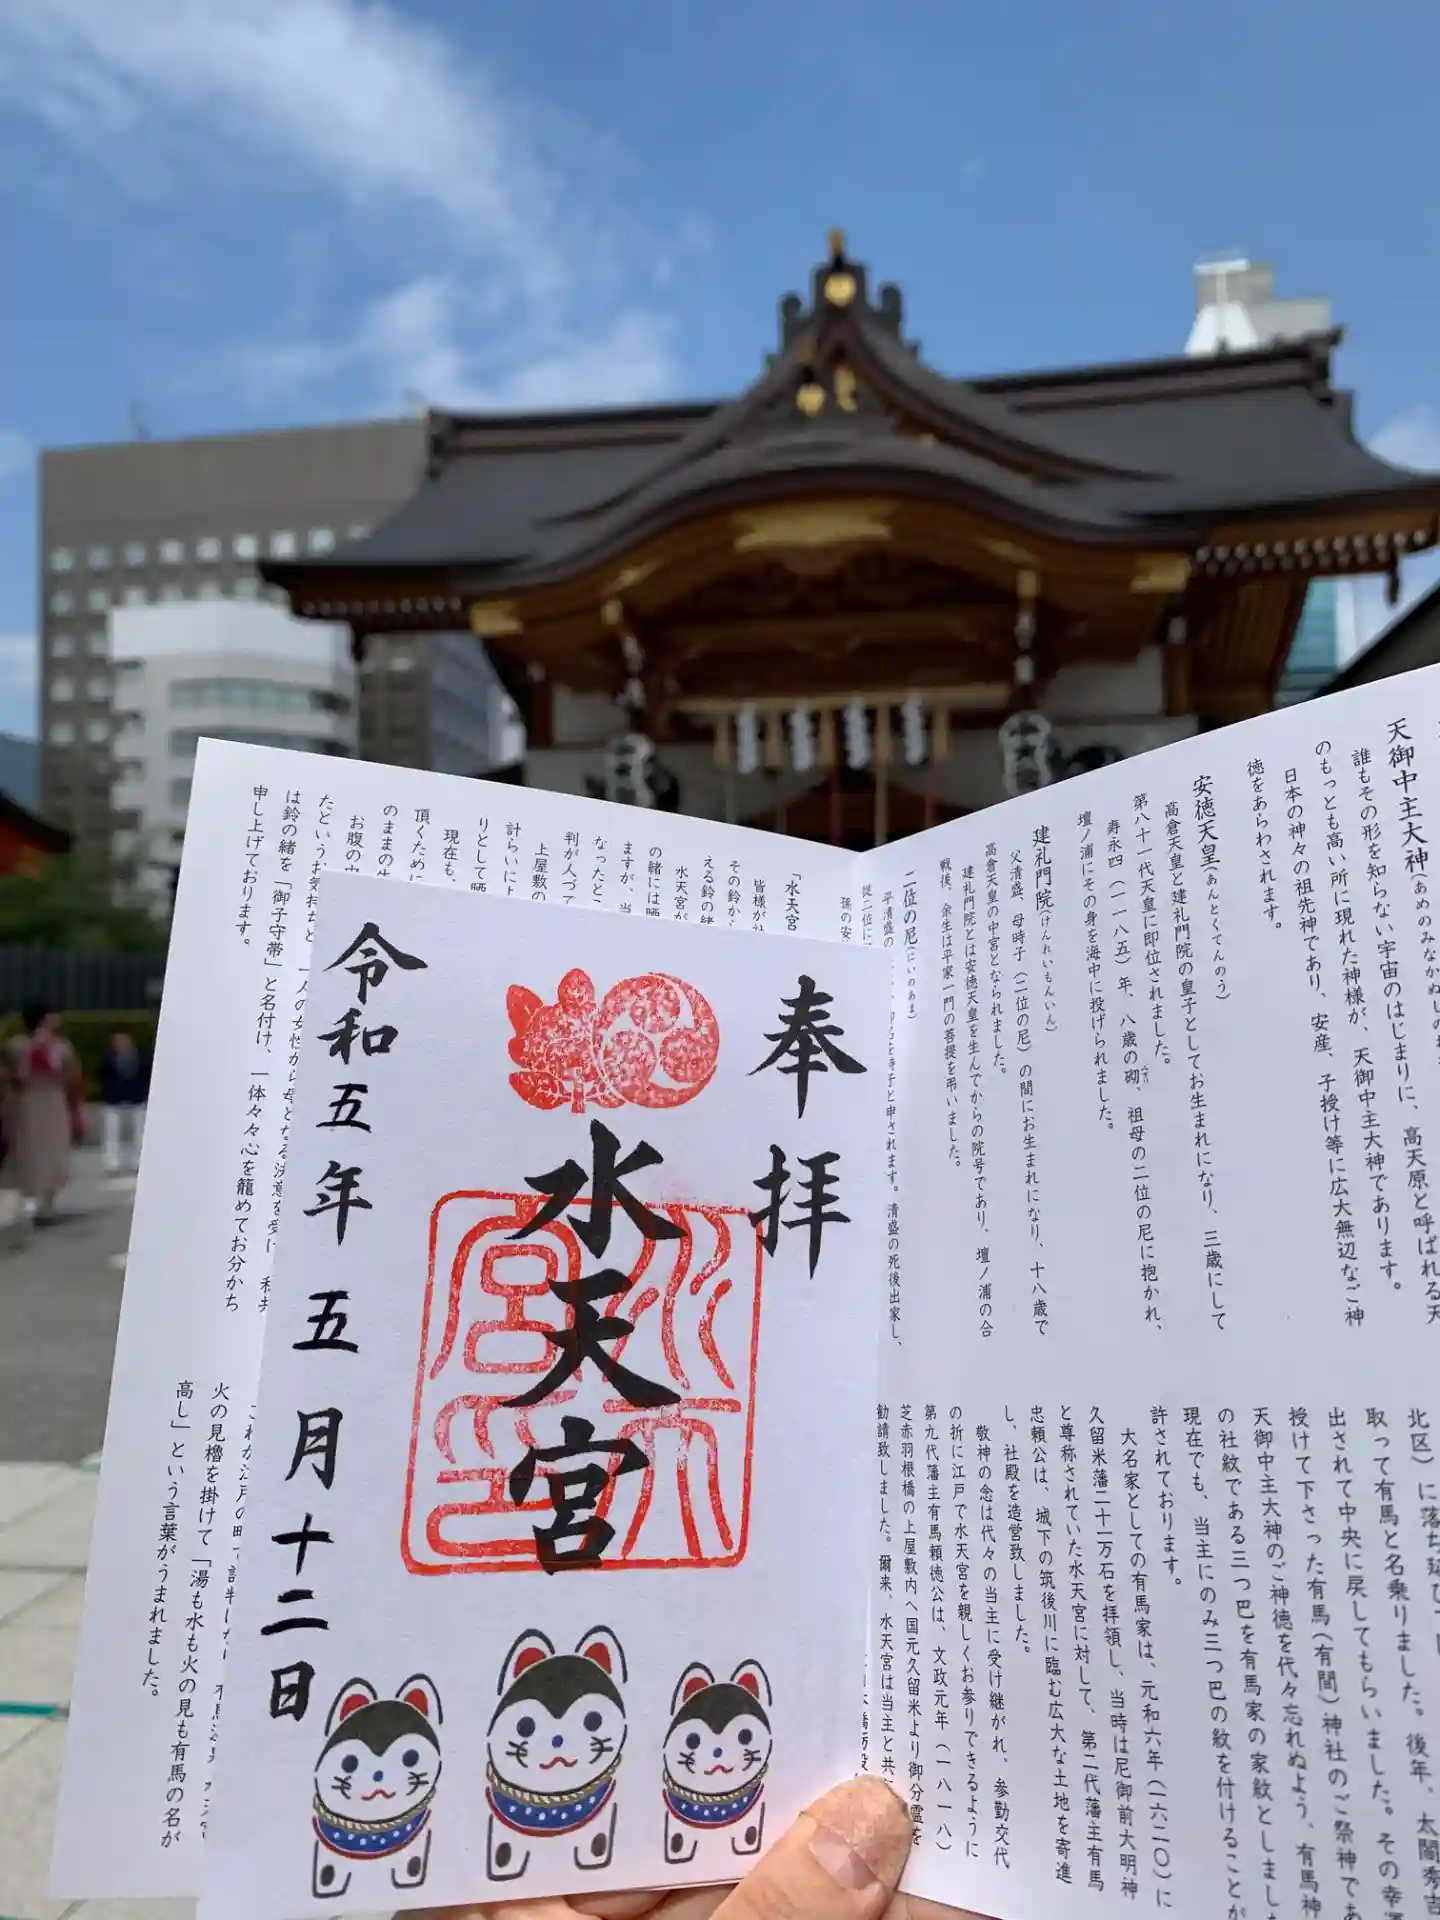 天御中主大神(あめのみなかぬしの
誰もその形を知らない宇宙のはじまりに、高天原と呼ばれる天
のもっとも高い所に現れた神様が、天御中主大神であります。
日本の神々の祖先神であり、安産、子授け等に広大無辺なご神
徳をあらわされます。
安徳天皇(あんとくてんのう)
高倉天皇と建礼門院の皇子としてお生まれになり、三歳にして
第八十一代天皇に即位されました。
寿永四(一一八五)年、八歳の砌、祖母の二位の尼に抱かれ、
壇ノ浦にその身を海中に投げられました。
建礼門院(けんれいもんいん)
父清盛、母時子(二位の尼)の間にお生まれになり、十八歳で
高倉天皇の中宮となられました。
建礼門院とは安徳天皇を生んでからの院号であり、壇ノ浦の合
戦後、余生は平家一門の菩提を弔いました。
二位の尼(にいのあま)
平清盛の
名を時子と申されます。清盛の死後出家し、
従二位に
孫の安
北区)に落ち
取って有馬と名乗りました。後年、太閤秀吉
出されて中央に戻してもらいました。その幸運
授けて下さった有馬(有間)神社のご祭神であ
天御中主大神のご神徳を代々忘れぬよう、有馬神
の社紋である三つ巴を有馬家の家紋としました
現在でも、当主にのみ三つ巴の紋を付けることが
許されております。
大名家としての有馬家は、元和六年(一六二〇)に
久留米藩二十一万石を拝領し、当時は尼御前大明神
と尊称されていた水天宮に対して、第二代藩主有馬
忠頼公は、城下の筑後川に臨む広大な土地を寄進
し、社殿を造営致しました。
敬神の念は代々の当主に受け継がれ、参勤交代
の折に江戸で水天宮を親しくお参りできるように
第九代藩主有馬頼徳公は、文政元年(一八一八)
芝赤羽根橋の上屋敷内へ国元久留米より御分霊を
勧請致しました。爾来、水天宮は当主と共
「水天宮
皆様が社
その鈴から
える鈴の緒
水天宮が
の緒には晒
ますが、当
なったとこ
判が人づて
上屋敷の
計らいに上
りとして晒
現在も、
頂くために
のままの生
お腹の中
たというお気持ちと、一人の女性から母となる決意を受け、私共
は鈴の緒を「御子守帯」と名付け、一体々々心を籠めてお分かち
申し上げております。
これが江戸の町で評判になり
火の見櫓を掛けて「湯も水も火の見も有馬の名が
高し」という言葉がうまれました。
奉拝
水天宮
水天宮印
令和五年五月十二日